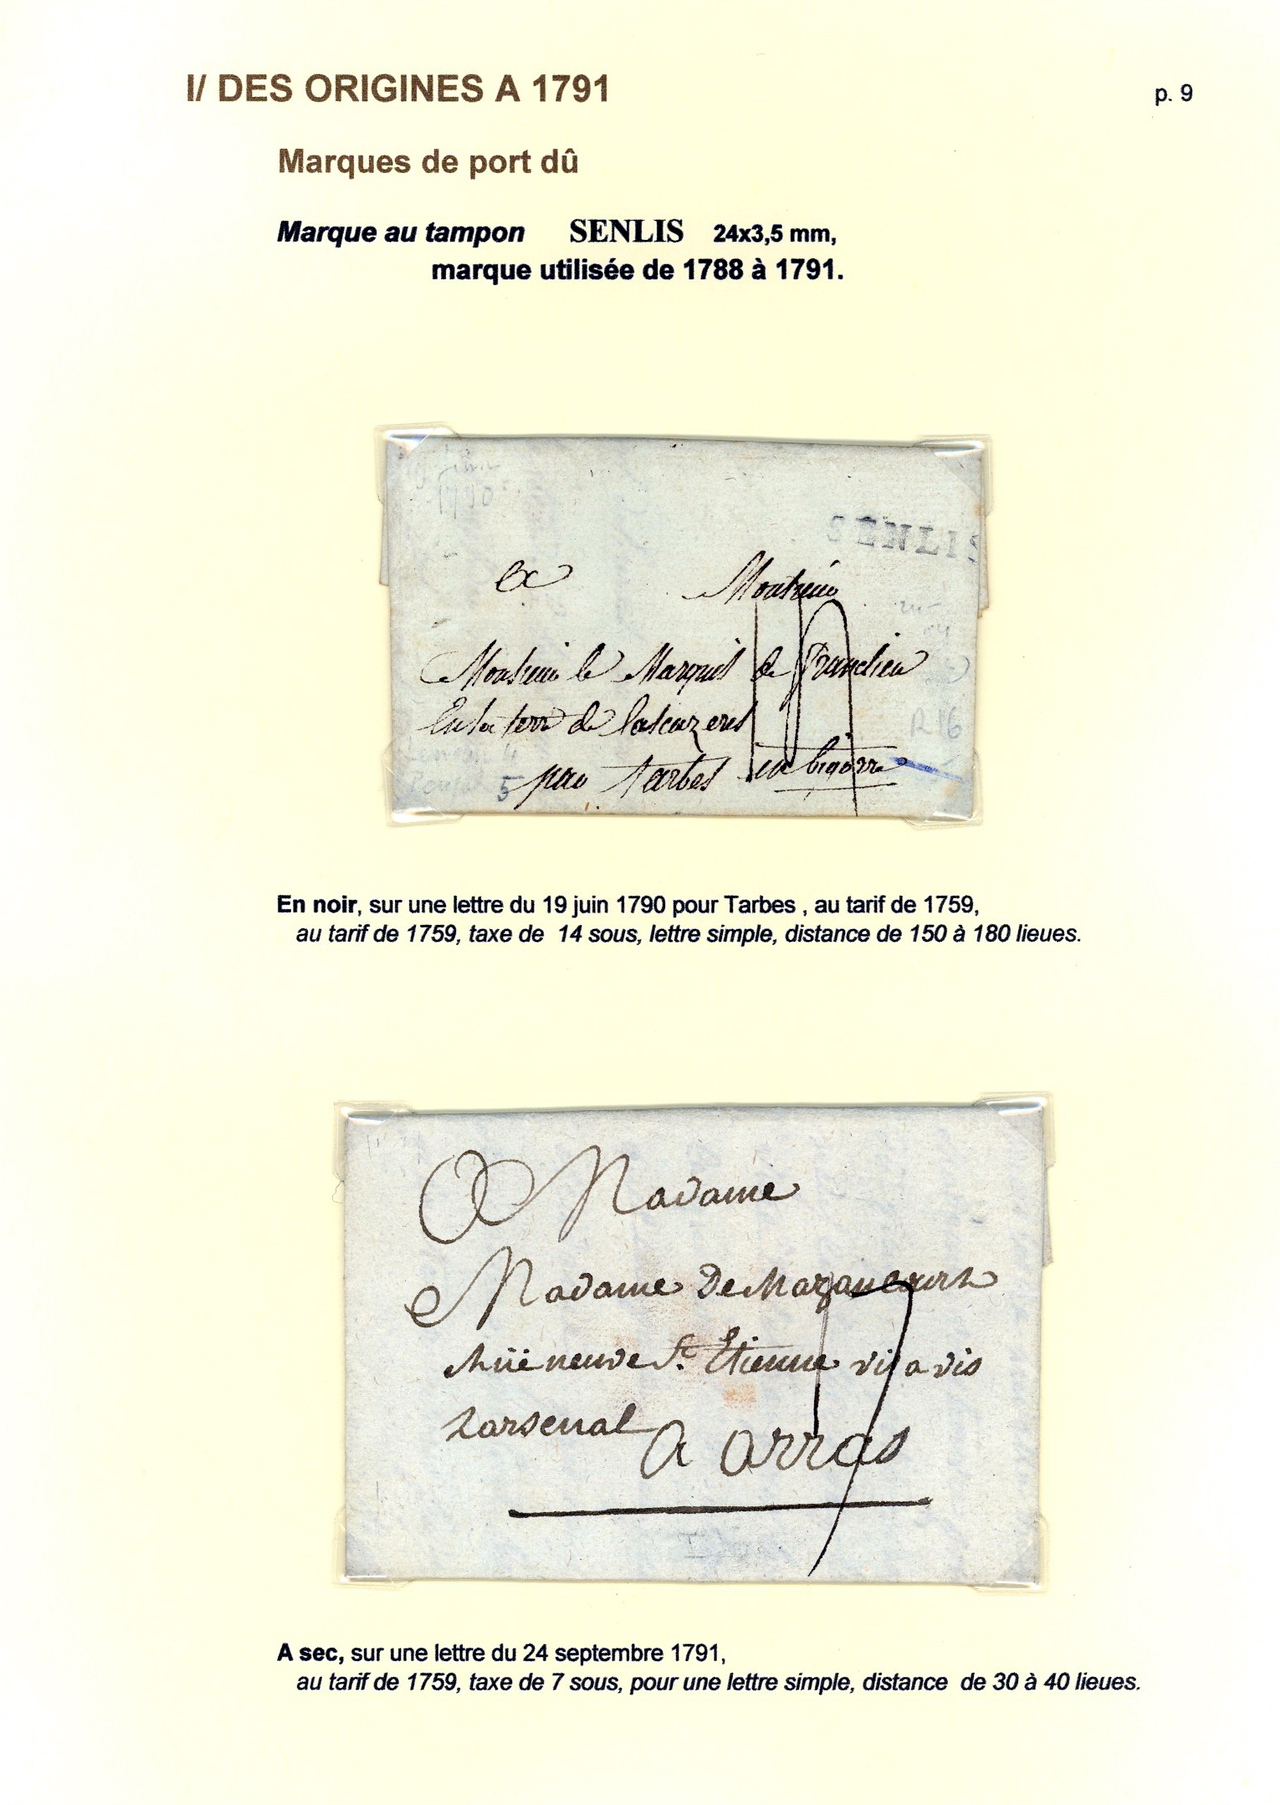 I/ DES ORIGINES A 1791
p. 9
Marques de port dû
Marque au tampon SENLIS 24x3,5 mm,
marque utilisée de 1788 à 1791.
1790
SENLIS
A Monsieur
Monsieur le Marquis de Franclieu
En sa terre de Lascazeres
R16
5 par Tarbes en bigorre
14
En noir, sur une lettre du 19 juin 1790 pour Tarbes , au tarif de 1759,
au tarif de 1759, taxe de 14 sous, lettre simple, distance de 150 à 180 lieues.
A Madame
Madame De Mazancourt
Rüe neuve St. Etienne vis a vis
Larsenal a arras
7
A sec, sur une lettre du 24 septembre 1791,
au tarif de 1759, taxe de 7 sous, pour une lettre simple, distance de 30 à 40 lieues.